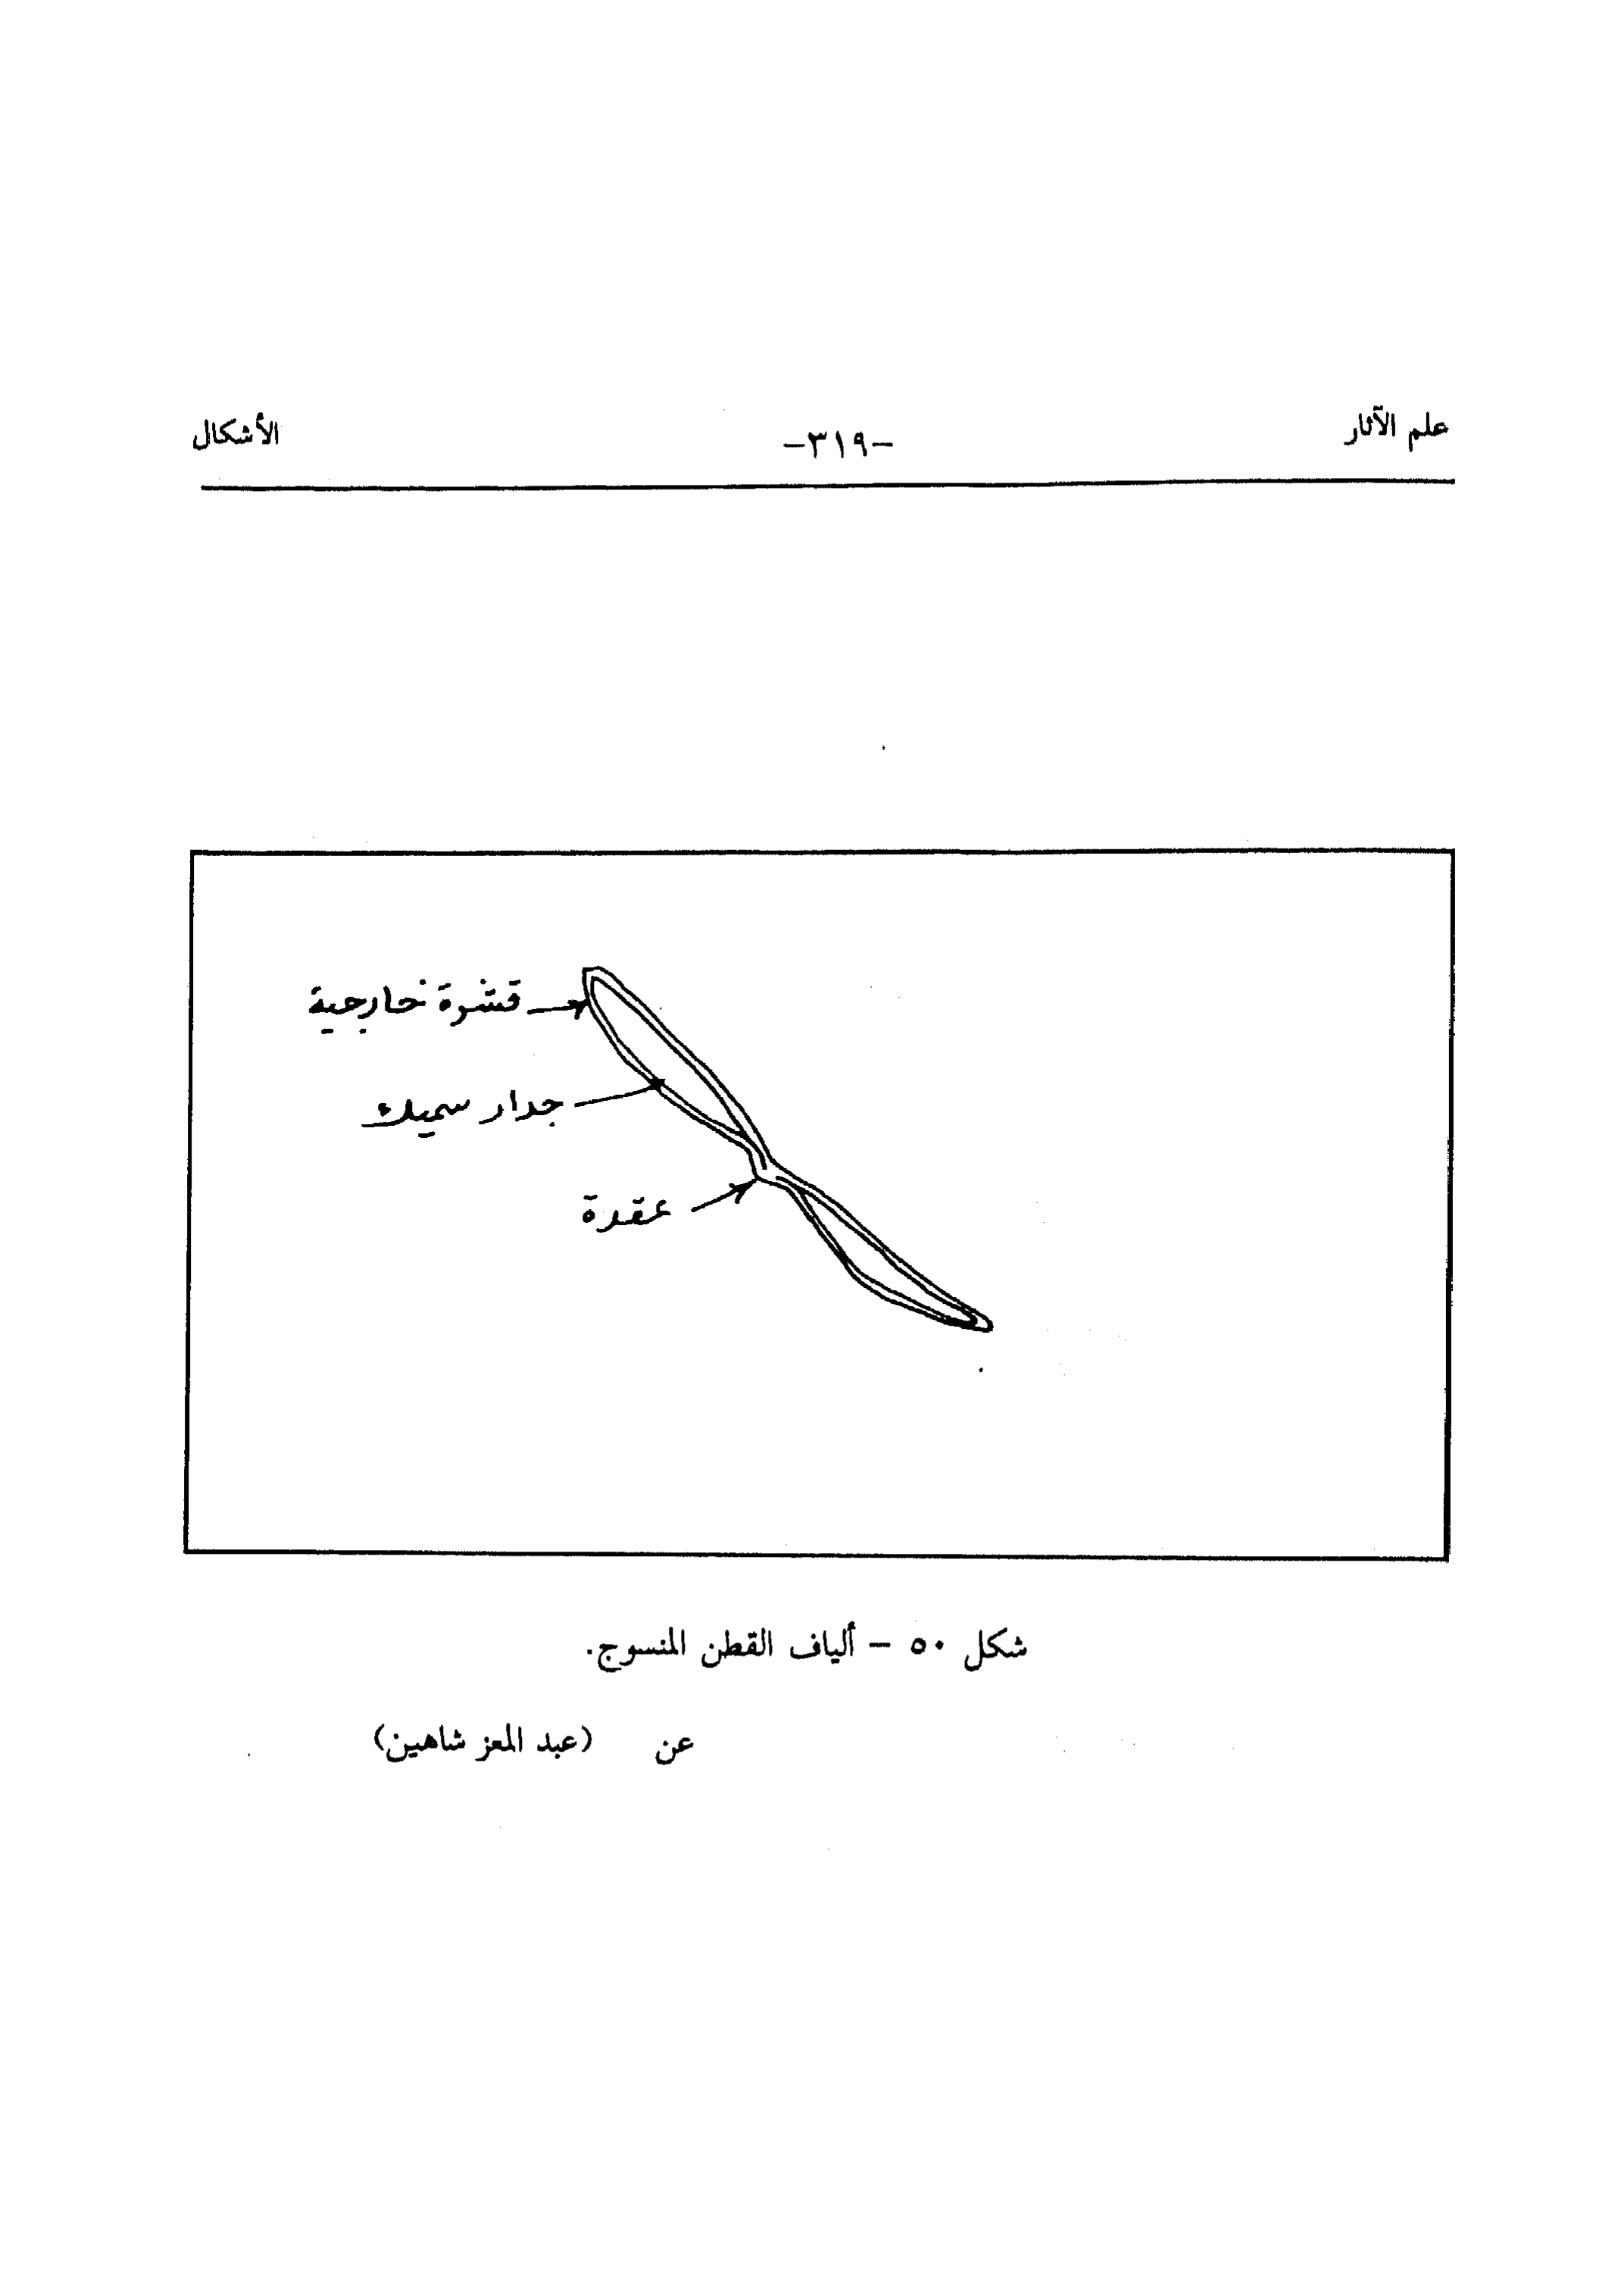 علم الآثار -٣١٩- الأشكال
قشرة خارجية
جدار سميك
عقدة
شكل ٥٠ - ألياف القطن المنسوج.
عن (عبد المعز شاهين)